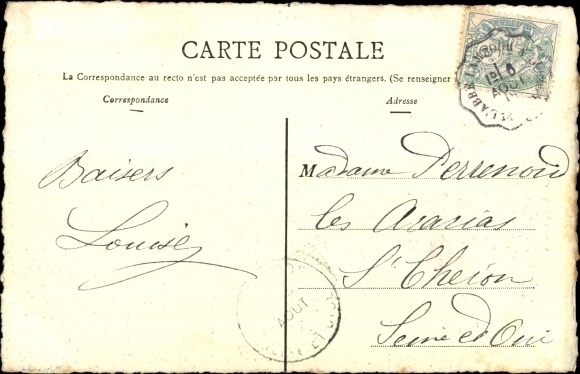 CARTE POSTALE
La Correspondance au recto n'est pas acceptée par tous les pays étrangers. (Se renseigner
Correspondance
Adresse
Baisers
Louise
Madame Perrenoud
les Acacias
St Chéron
Seine et Oise
AOUT
AOUT